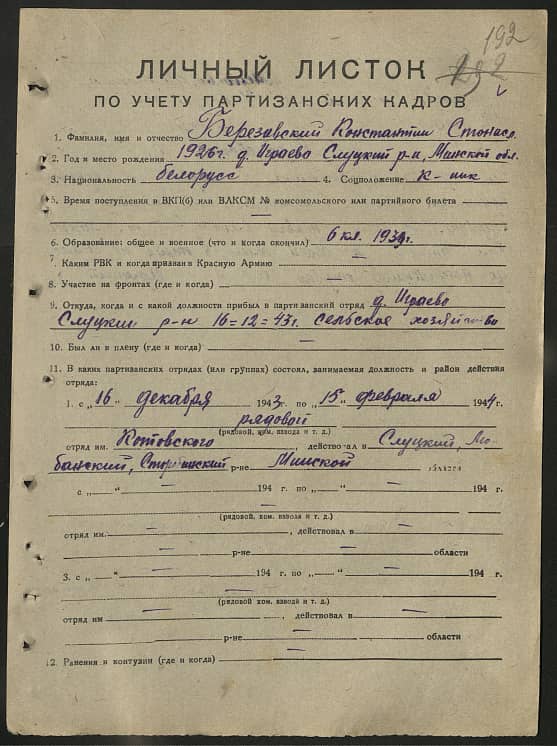 192
ЛИЧНЫЙ ЛИСТОК
ПО УЧЕТУ ПАРТИЗАНСКИХ КАДРОВ
1. Фамилия, имя и отчество Березовский Константин
2. Год и место рождения 1926г. д. Играево Слуцкий р-н, Минской обл.
3. Национальность белорусс 4. Соцположение к-ник
5. Время поступления в ВКП(б) или ВЛКСМ № комсомольского или партийного билета
—
6. Образование: общее и военное (что и когда окончил) 6 кл. 1939г.
7. Каким РВК и когда призван в Красную Армию —
8. Участие на фронтах (где и когда) —
9. Откуда, когда и с какой должности прибыл в партизанский отряд д. Играево
Слуцкий р-н 16=12=43г. сельское хозяйство
10. Был ли в плену (где и когда) —
11. В каких партизанских отрядах (или группах) состоял, занимаемая должность и район действия
отряда:
1. с „16" декабря 1943г. по „15" февраля 1944г.
рядовой
(рядовой, ком. взвода и т. д.)
отряд им. Котовского, действовал в Слуцкий, Лю-
банский, р-не Минской области
с „—" — 194 г. по „—" — 194 г.
—
(рядовой, ком. взвода и т. д.)
отряд им. —, действовал в —
— р-не — области
3. с „—" — 194 г. по „—" — 194 г.
—
(рядовой ком. взвода и т. д.)
отряд им —, действовал в —
— р-не — области
12. Ранения и контузии (где и когда) —